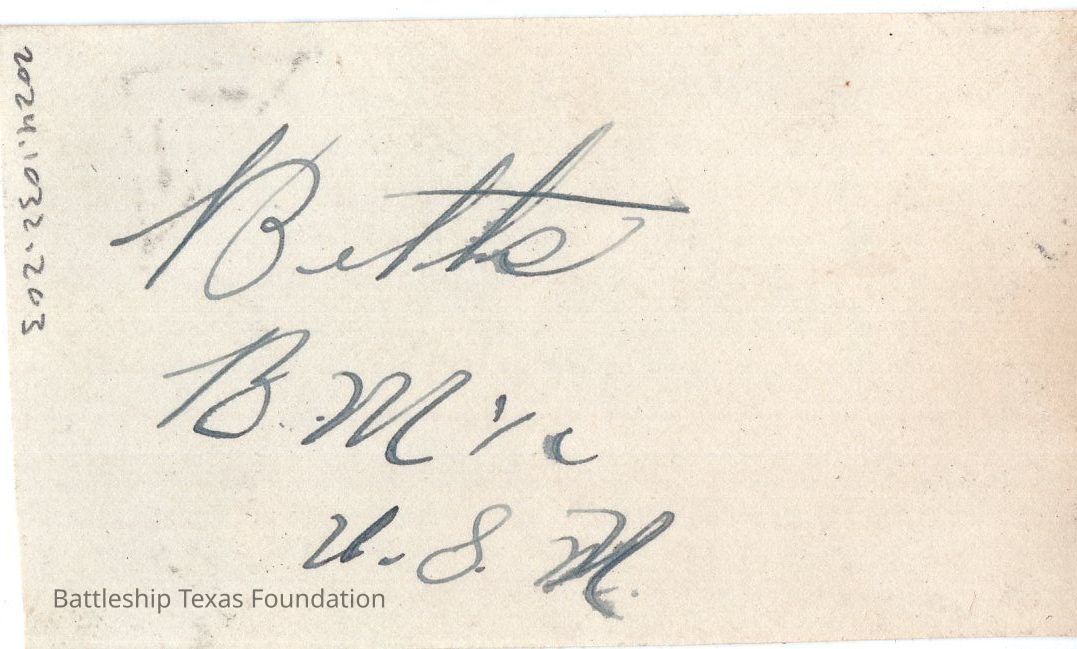 2024.1032.203
Betts
B.M. 1/c
U.S.N.
Battleship Texas Foundation